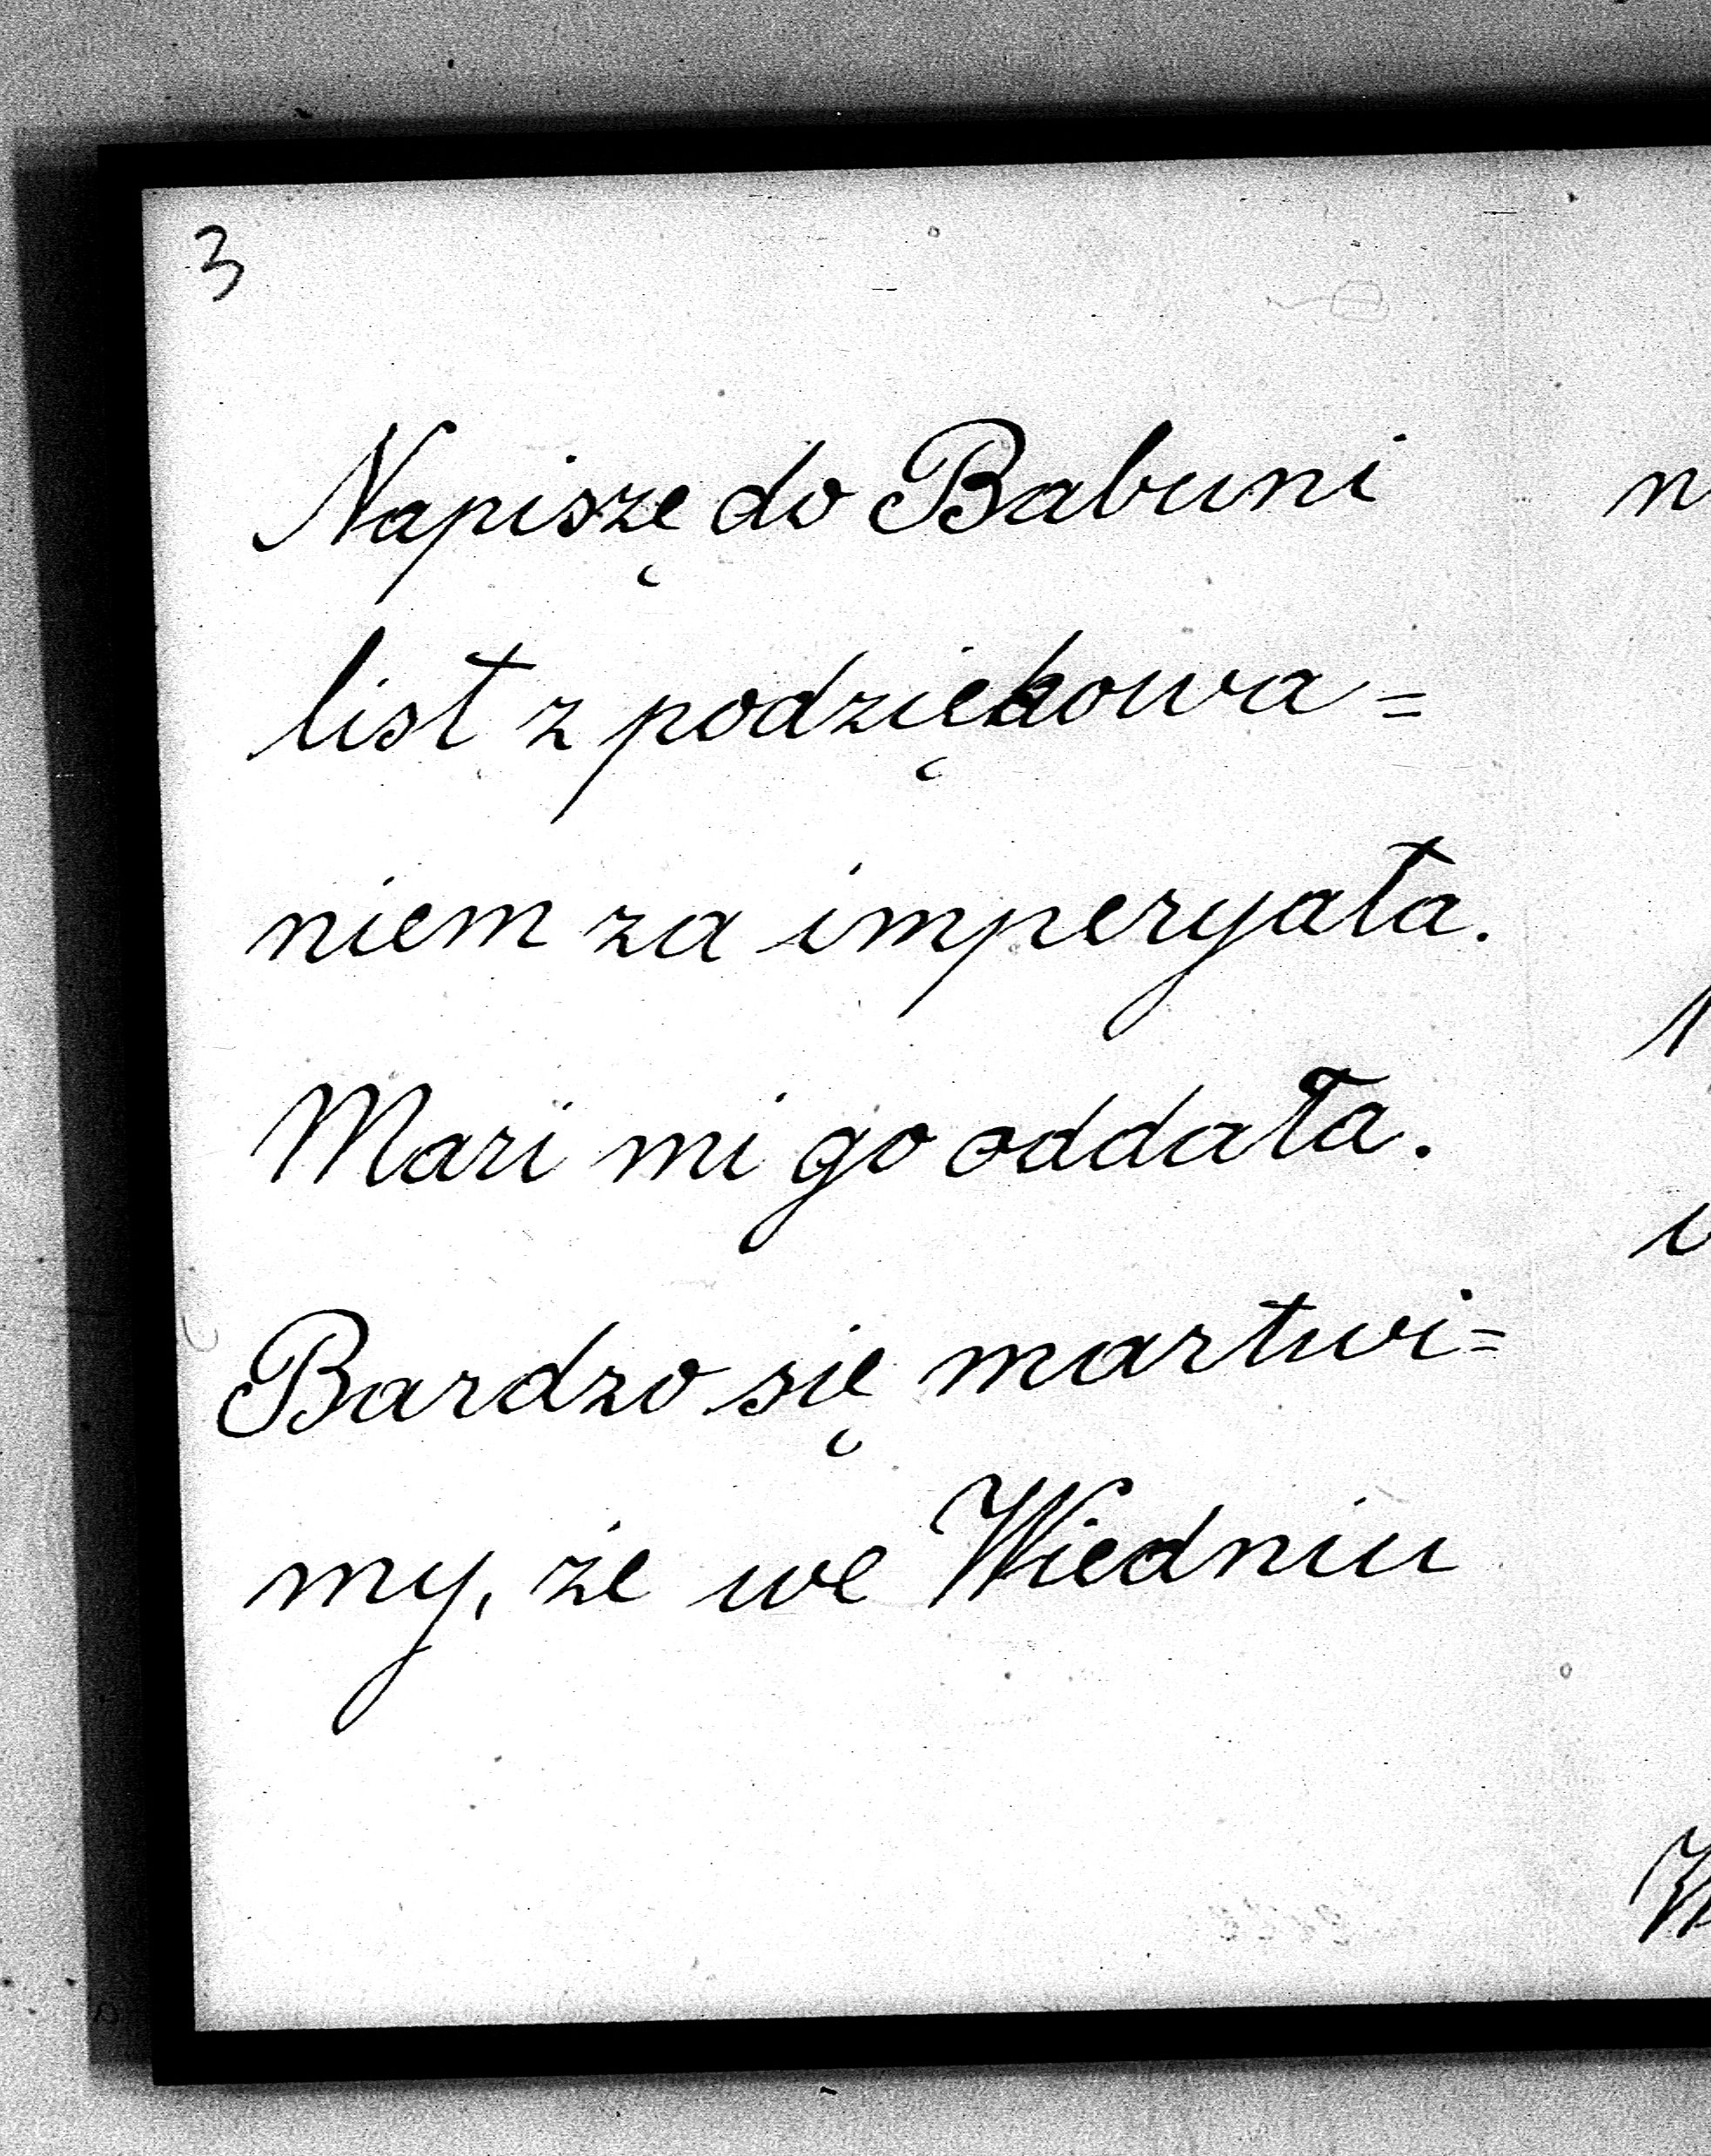 3
Napiszę do Babuni
list z podziękowa=
niem za imperyała.
Mari mi go oddała.
Bardzo się martwi=
my, że we Wiedniu